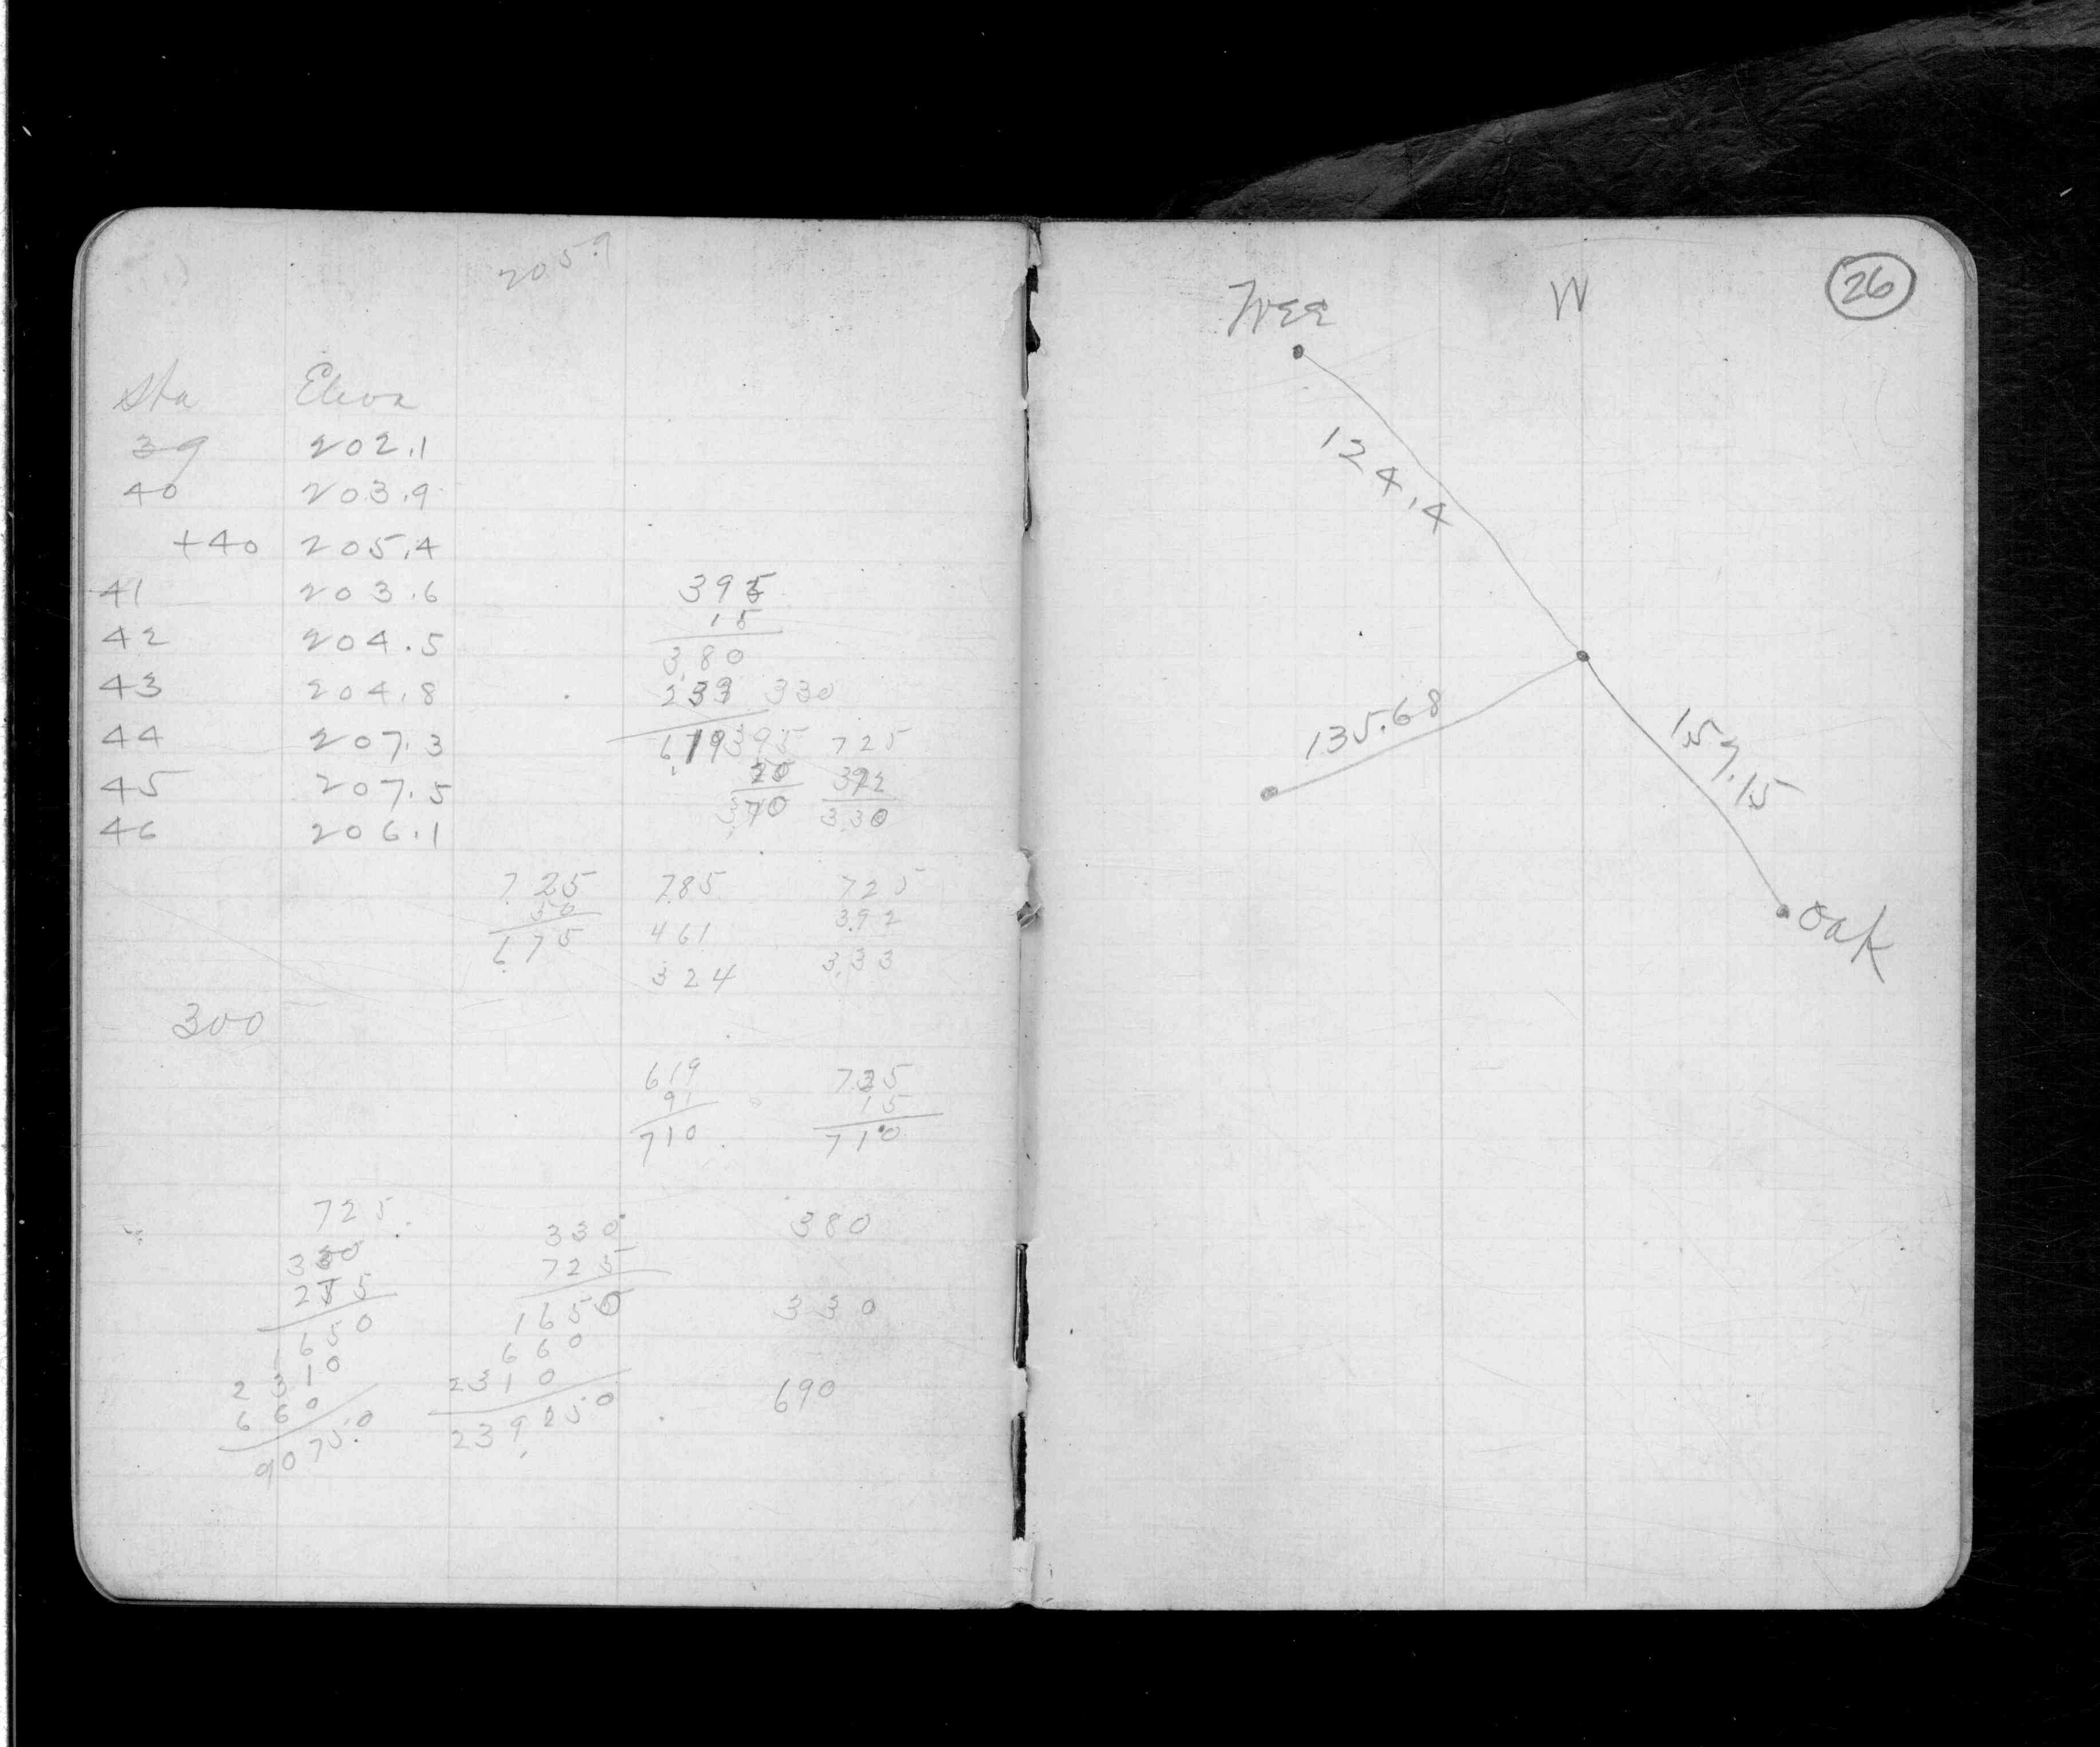 205.9
Sta Eleva
39 202.1
40 203.9
+40 205.4
41 203.6
42 204.5
43 204.8
44 207.3
45 207.5
46 206.1
395
15
380
239 330
619 395 725
20 392
370 330
725 785 725
50 461 392
675 324 333
300
619 725
91 15
710 710
725 330 380
330 725
275 1650 330
1650 660
2310 2310 690
660 239250
90750
26
Tree W
124.4
135.68
159.15
Oak